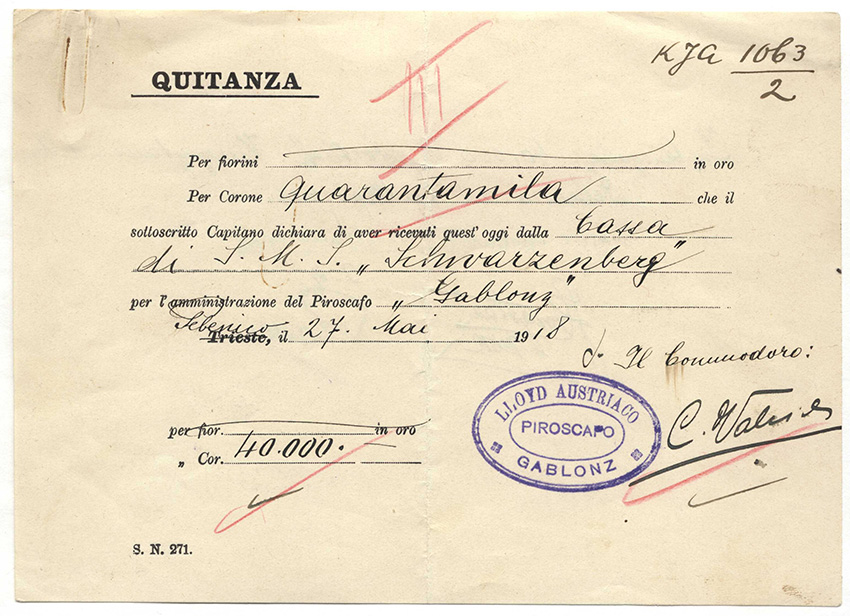 KJA 1063/2
QUITANZA
III
Per fiorini in oro
Per Corone Quarantamila che il
sottoscritto Capitano dichiara di aver ricevuti quest' oggi dalla Cassa
di S. M. S. „Schwarzenberg"
per l'amministrazione del Piroscafo „Gablonz"
Sebenico
Trieste, il 27. Mai 1918
Il Commodoro:
LLOYD AUSTRIACO
PIROSCAFO
GABLONZ
per fior. in oro
„ Cor. 40.000.
S. N. 271.